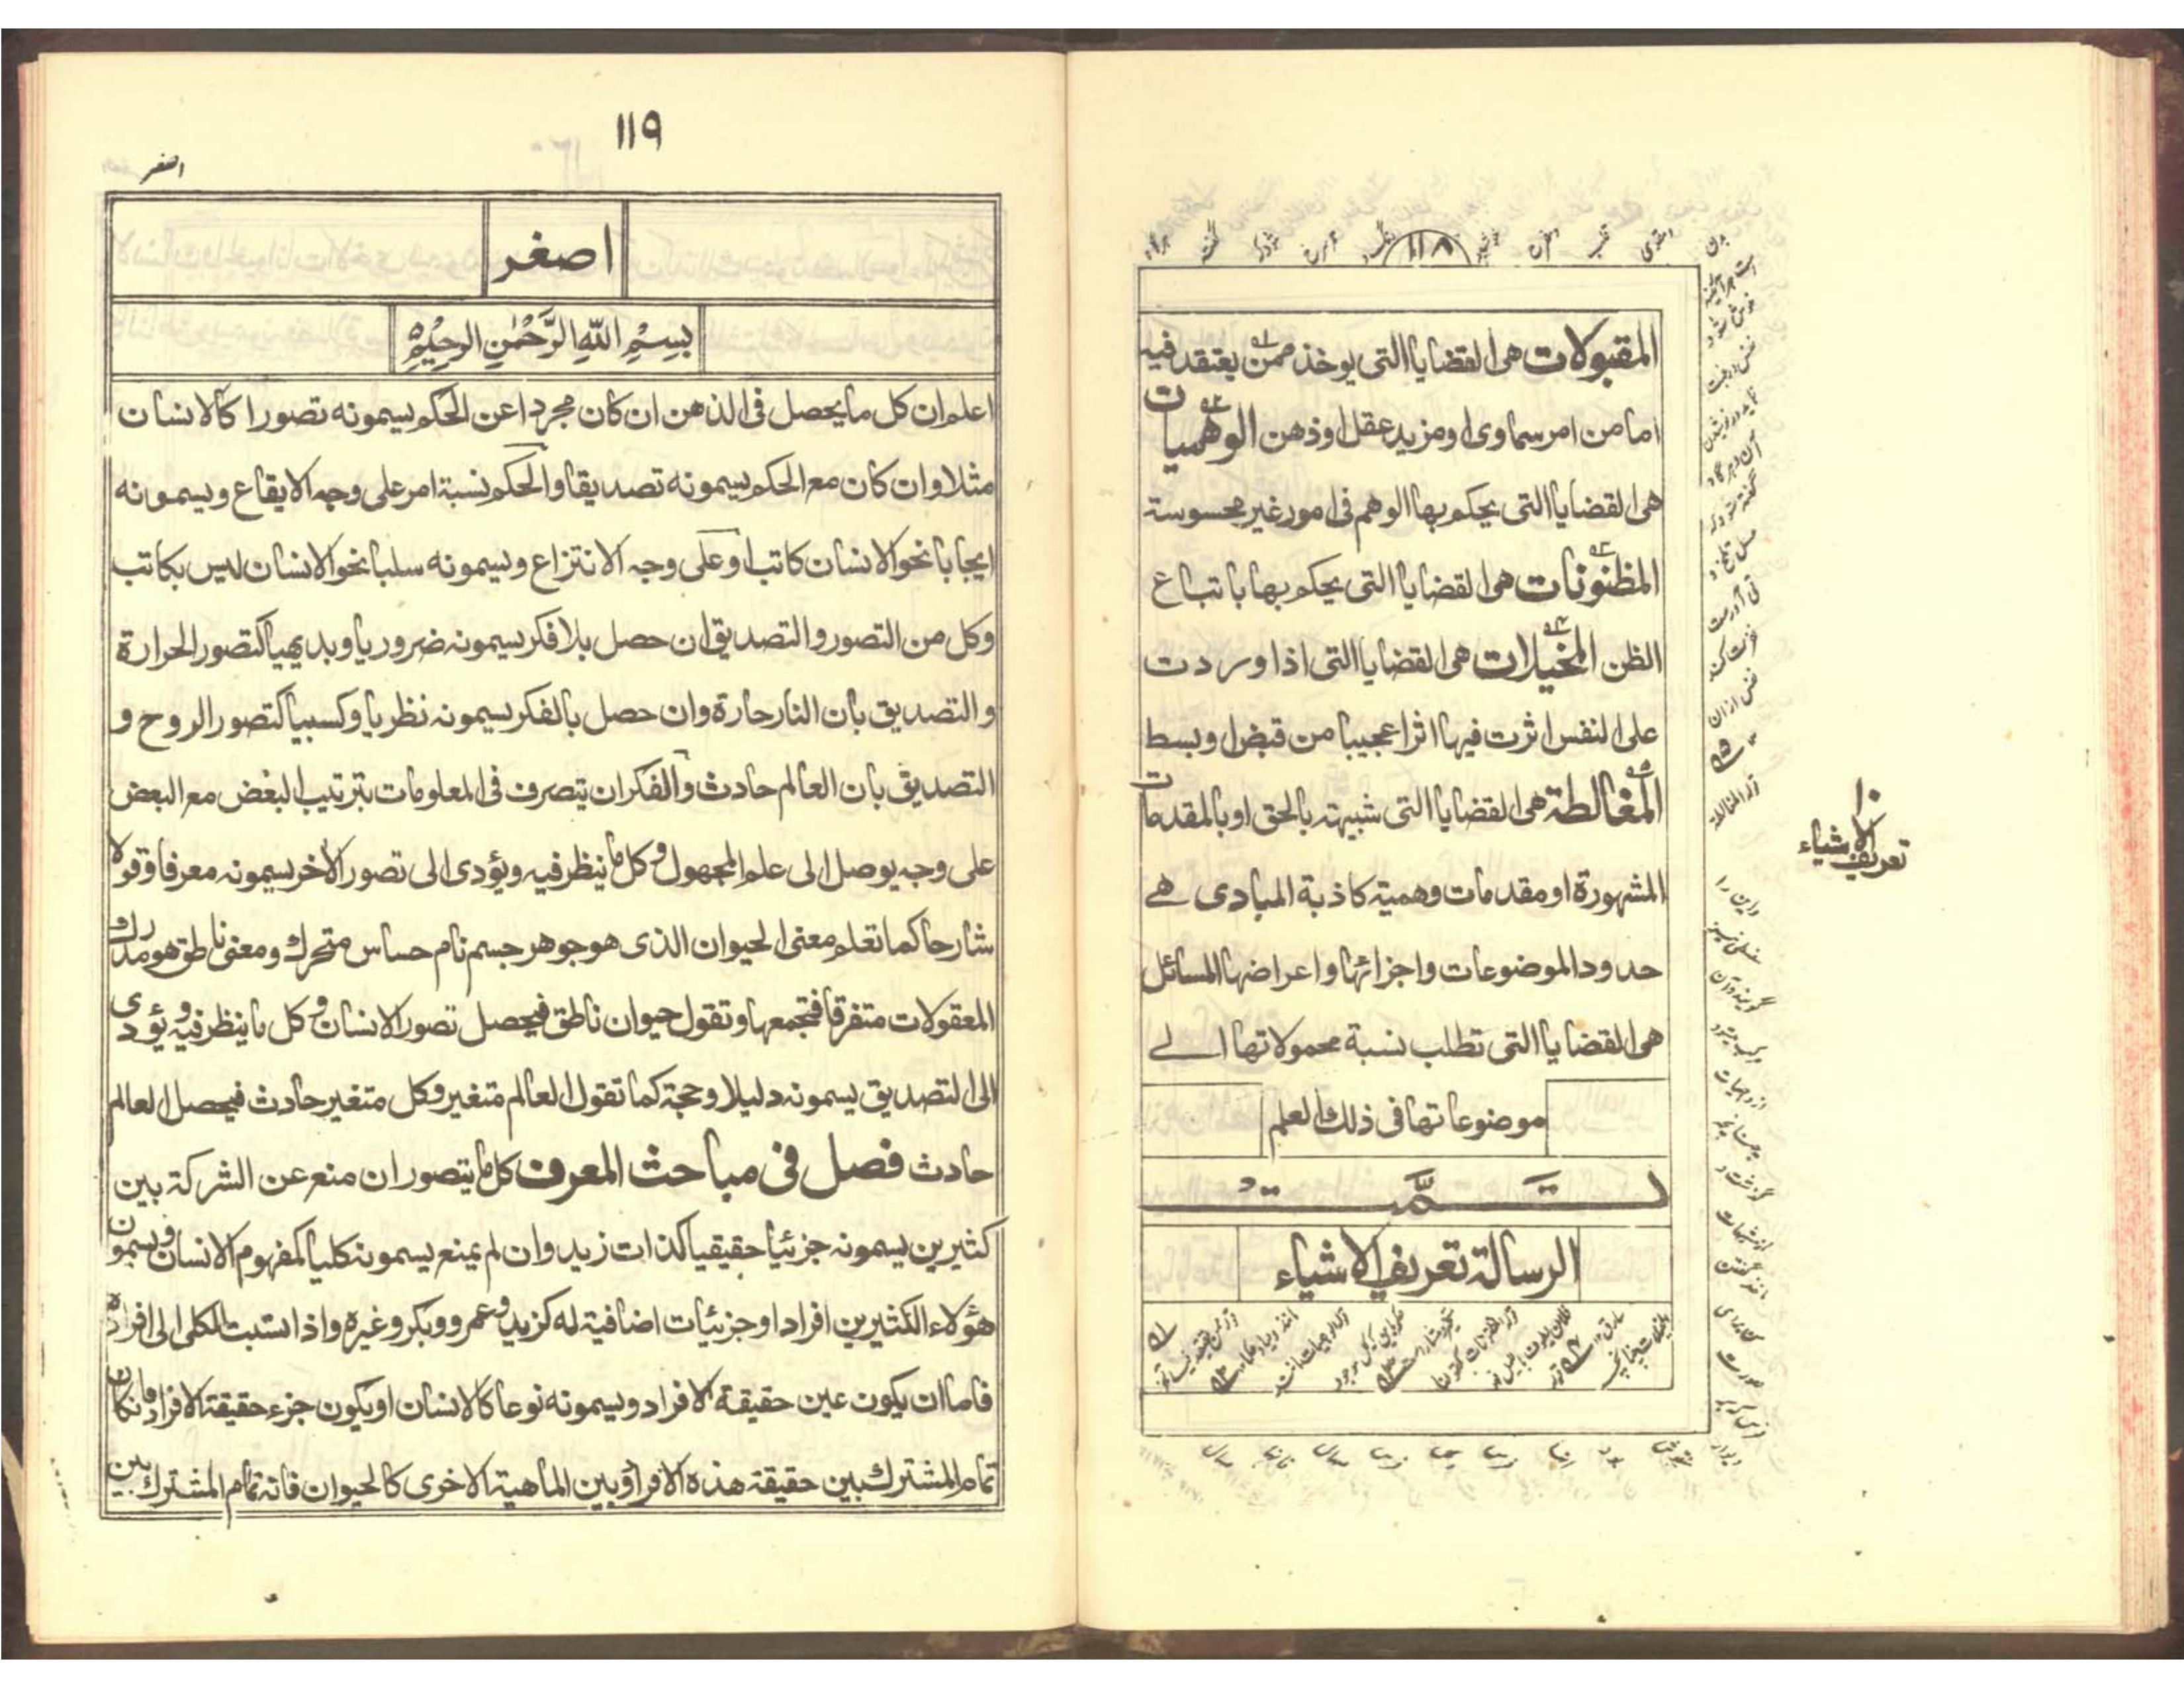 ١١٨
المقبولات هى القضايا التى يوخذ ممن يعتقد فيه
اما من امر سماوى او مزيد عقل او ذهن الوهميات
هى القضايا التى يحكم بها الوهم فى امور غير محسوسة
المظنونات هى القضايا التى يحكم بها باتباع
الظن المخيلات هى القضايا التى اذا وردت
على النفس اثرت فيها اثرا عجيبا من قبض او بسط
المغالطة هى القضايا التى شبيهة بالحق او بالمقدمات
المشهورة او مقدمات وهمية كاذبة المبادى هے
حدود الموضوعات واجزائها واعراضها المسائل
هى القضايا التى تطلب نسبة محمولاتها الے
موضوعاتها فى ذلك العلم
تمت
الرسالة تعريف الاشياء
١٠
تعريف الاشياء
١١٩
اصغر
اصغر
بِسْمِ اللهِ الرَّحْمٰنِ الرحِيْمِ
اعلم ان كل ما يحصل فى الذهن ان كان مجردا عن الحكم يسمونه تصورا كالانسان
مثلا وان كان مع الحكم يسمونه تصديقا والحكم نسبة امر على وجه الايقاع ويسمونه
ايجابا نحو الانسان كاتب او على وجه الانتزاع ويسمونه سلبا نحو الانسان ليس بكاتب
وكل من التصور والتصديق ان حصل بلا فكر يسمونه ضروريا وبديهيا كتصور الحرارة
والتصديق بان النار حارة وان حصل بالفكر يسمونه نظريا وكسبيا كتصور الروح و
التصديق بان العالم حادث والفكر ان يتصرف فى المعلومات بترتيب البعض مع البعض
على وجه يوصل الى علم المجهول وكل ما ينظر فيه ويؤدى الى تصور الاخر يسمونه معرفا وقولا
شارحا كما تعلم معنى الحيوان الذى هو جوهر جسم نام حساس متحرك ومعنى ناطق هو مدرك
المعقولات متفرقا فتجمعها وتقول حيوان ناطق فيحصل تصور الانسان وكل ما ينظر فيه ويؤدى
الى التصديق يسمونه دليلا وحجة كما تقول العالم متغير وكل متغير حادث فيحصل العالم
حادث فصل فى مباحث المعرف كل ما يتصور ان منع عن الشركة بين
كثيرين يسمونه جزئيا حقيقيا كذات زيد وان لم يمنع يسمونه كليا كمفهوم الانسان ويسمون
هؤلاء الكثيرين افرادا وجزئيات اضافية له كزيد وعمرو وبكر وغيره واذا نسبت الكلى الى افراده
فاما ان يكون عين حقيقة الافراد ويسمونه نوعا كالانسان او يكون جزء حقيقة الافراد فان كان
تمام المشترك بين حقيقة هذه الافراد وبين الماهية الاخرى كالحيوان فانه تمام المشترك بين